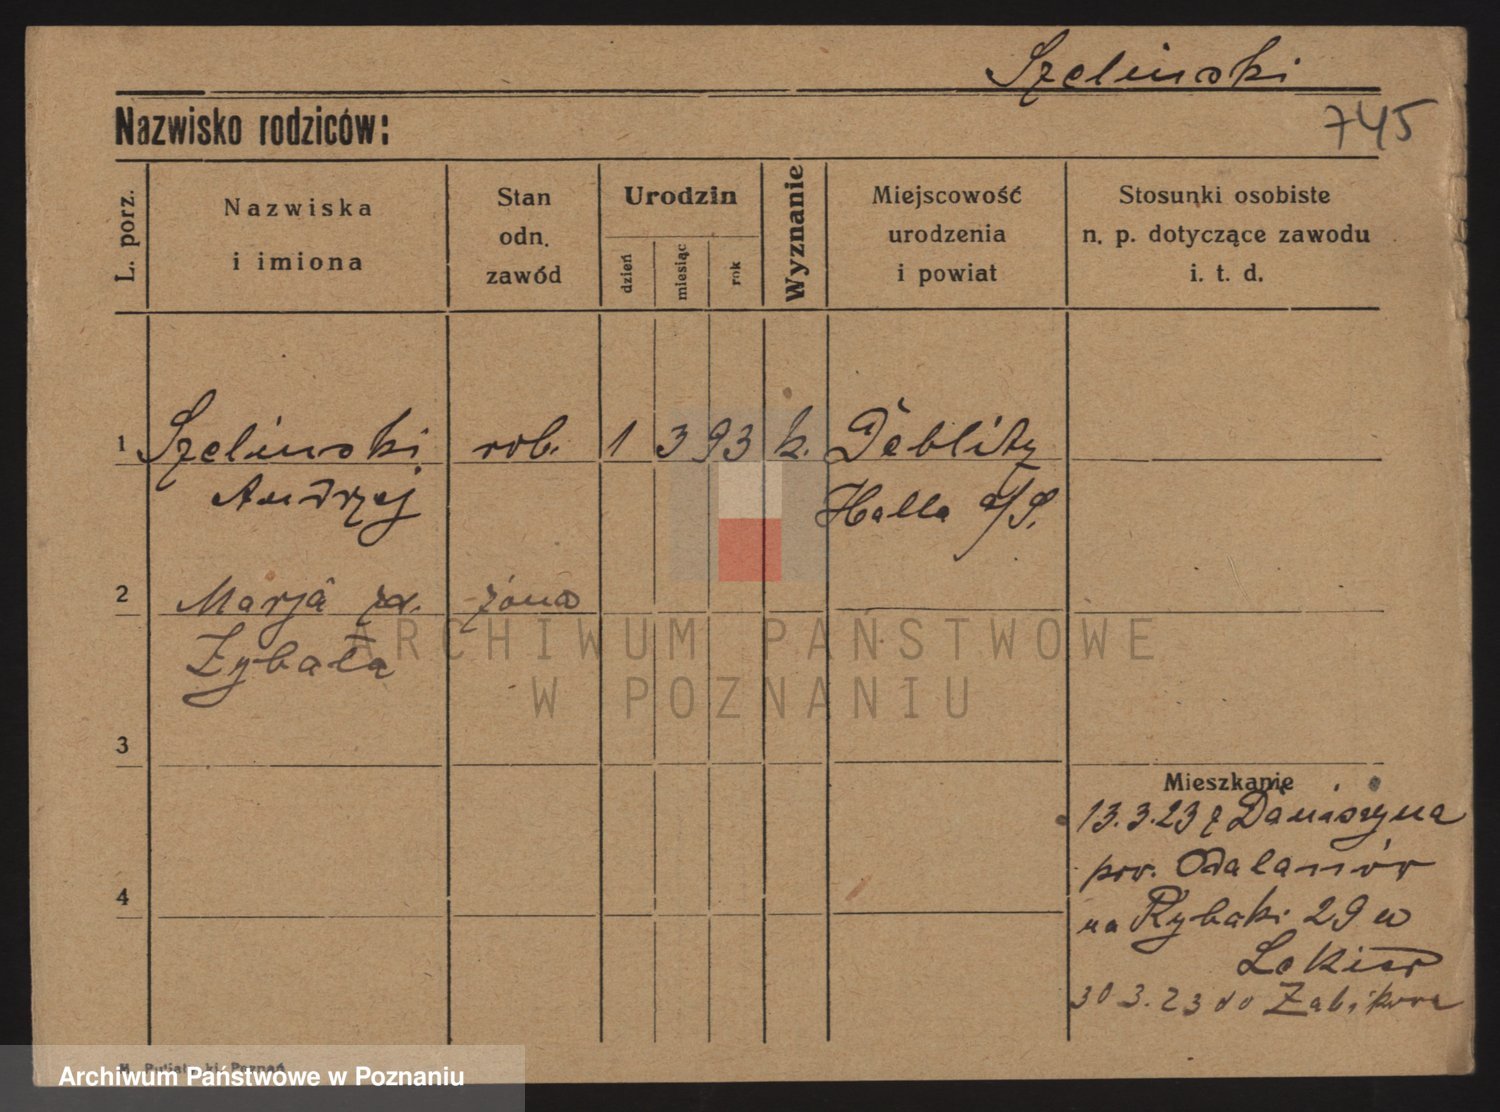 Szelinski
Nazwisko rodziców:
745
L. porz.
Nazwiska
i imiona
Stan
odn.
zawód
Urodzin
dzień
miesiąc
rok
Wyznanie
Miejscowość
urodzenia
i powiat
Stosunki osobiste
n. p. dotyczące zawodu
i. t. d.
1 Szelinski rob. 1 3 93 k. Deblitz
Andrzej Halla a/S.
2 Marja zd. żona
Zybała
3
4
Mieszkanie
13.3.23 z Daniszyna
pow. Odalanów
na Rybaki 29 u
30 3. 23 do Żabikowa
ARCHIWUM PAŃSTWOWE
W POZNANIU
Archiwum Państwowe w Poznaniu